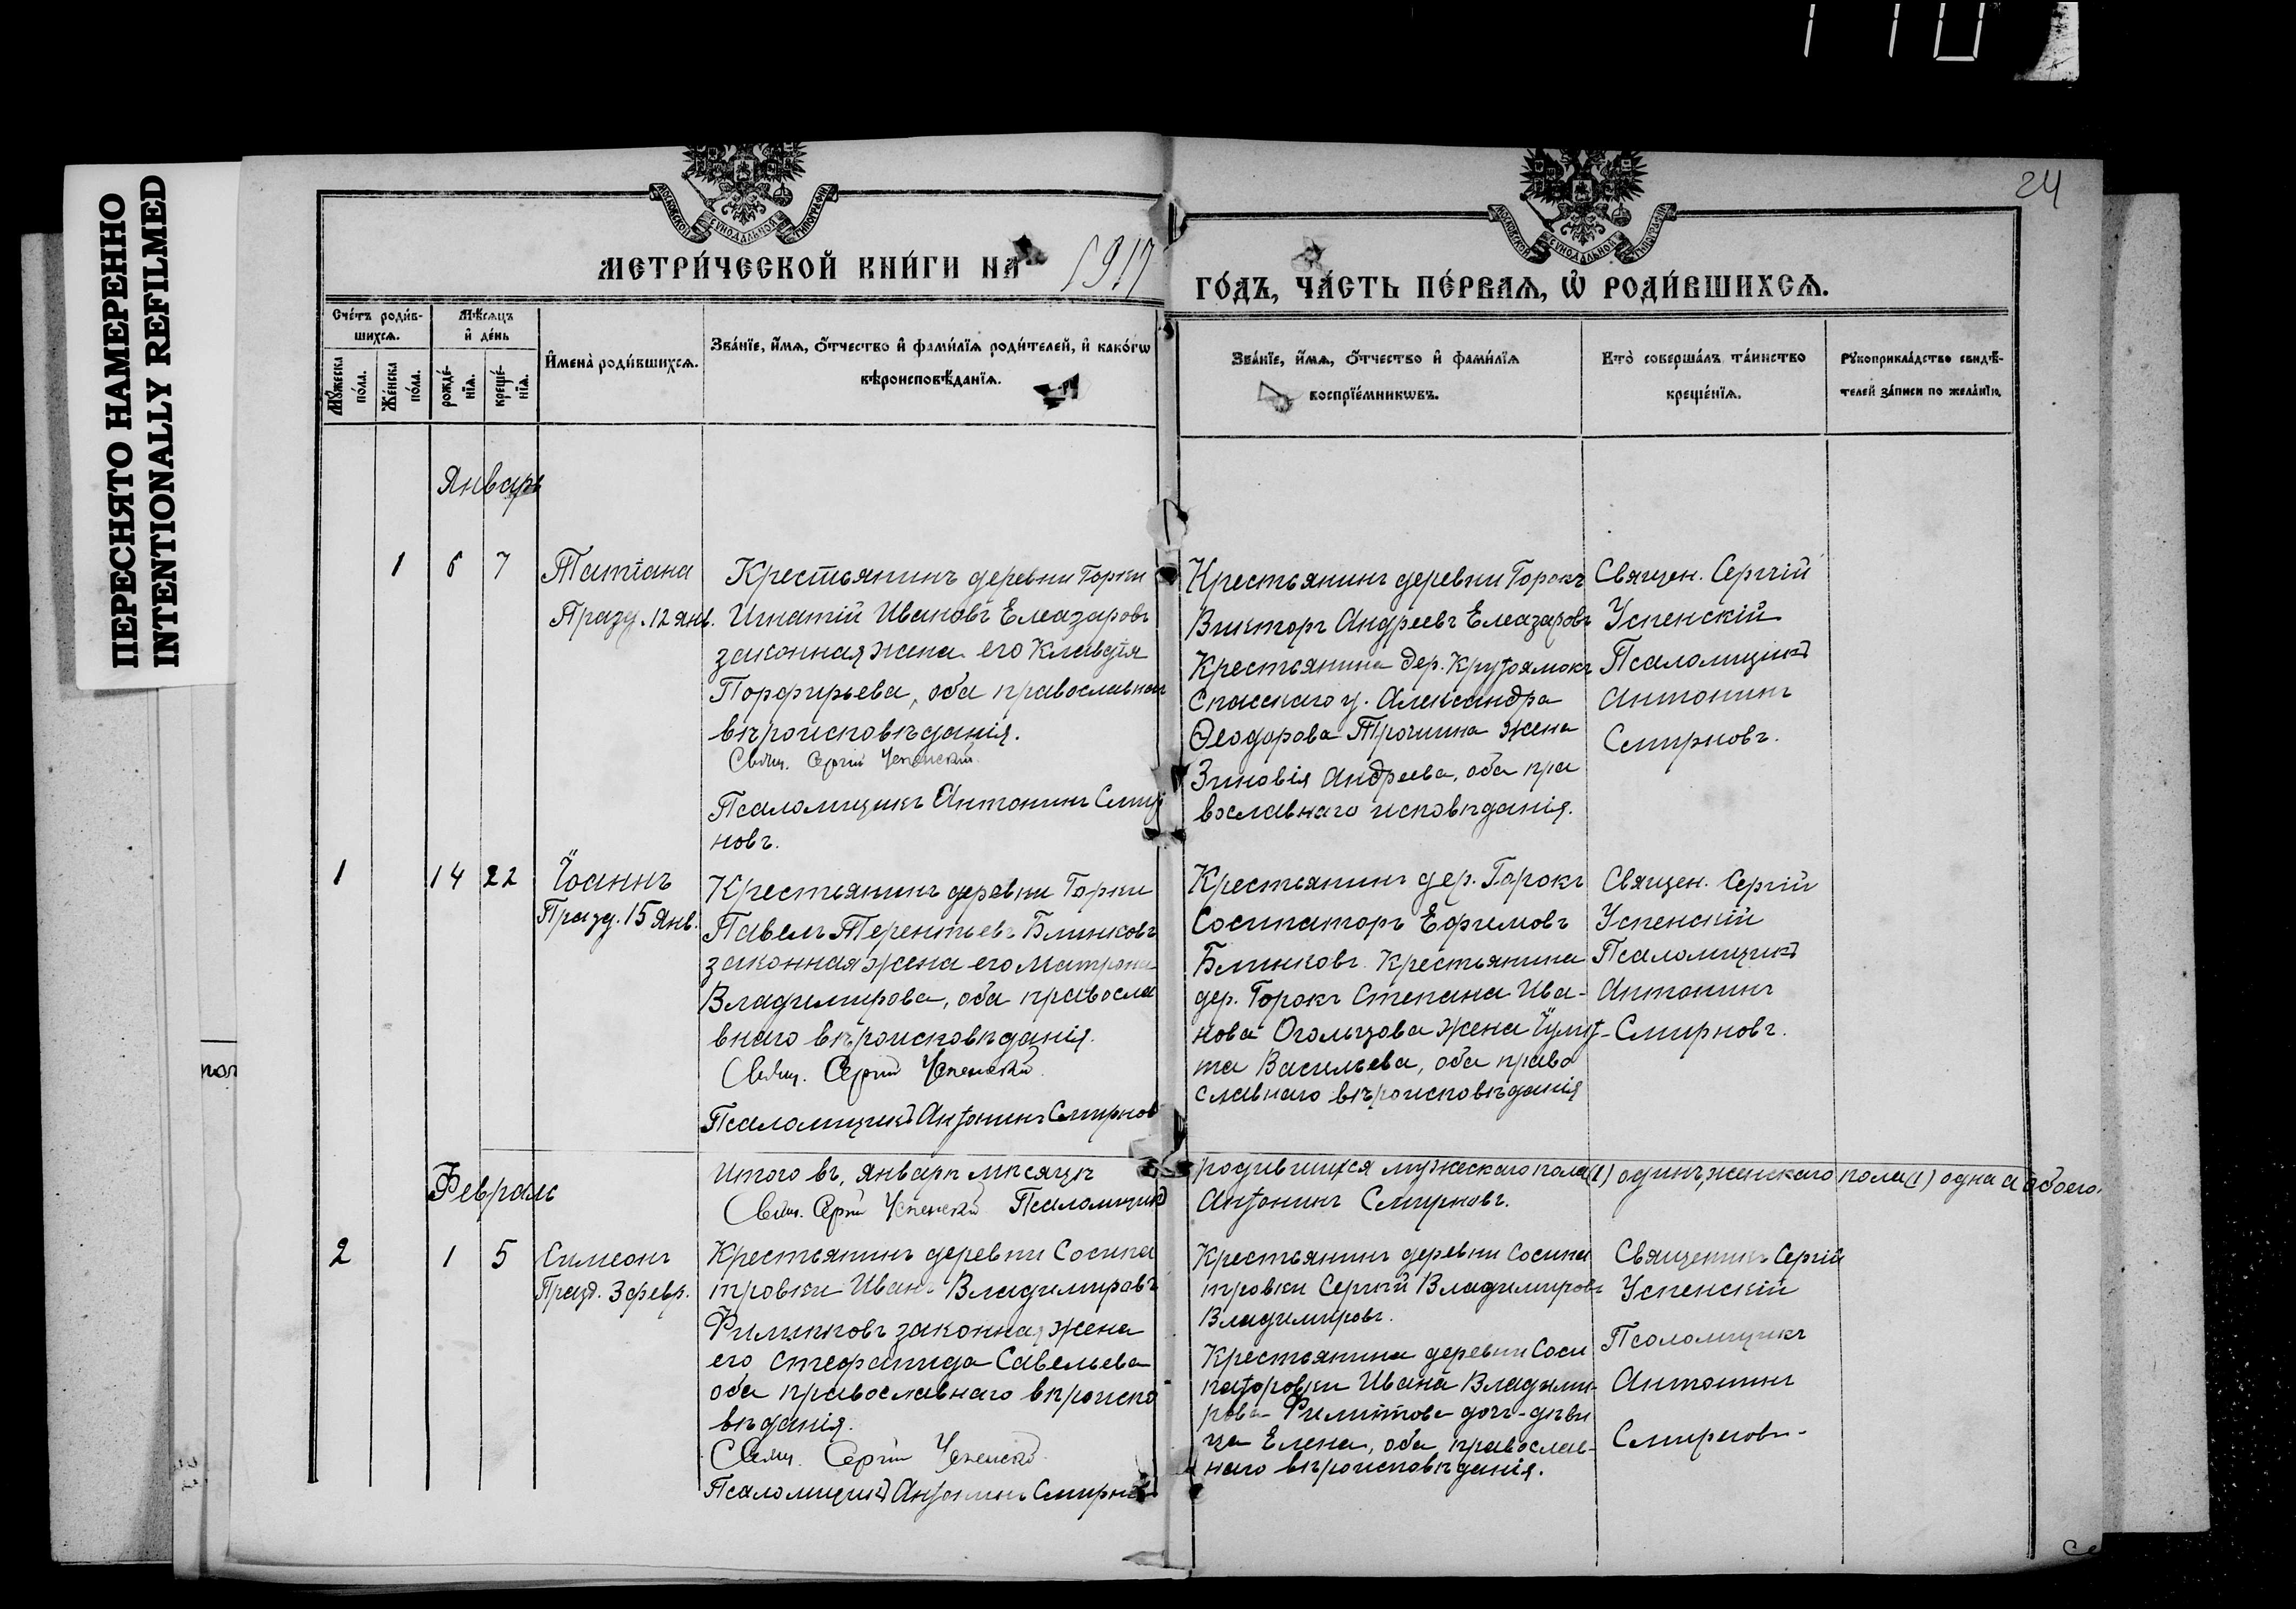 ПЕРЕСНЯТО НАМЕРЕННО
INTENTIONALLY REFILMED
24
МОСКОВСКОЙ СѴНОДАЛЬНОЙ ТИПОГРАФІИ
МОСКОВСКОЙ СѴНОДАЛЬНОЙ ТИПОГРАФІИ
МЕТРИ́ЧЕСКОЙ КНИ́ГИ НА 1917
ГО́ДЪ, ЧА́СТЬ ПЕ́РВАѦ, Ѡ҆ РОДИ́ВШИХСѦ.
Сче́тъ роди́в-
шихсѧ.
Мꙋ́жеска
по́ла.
Же́нска
по́ла.
Мѣ́сѧцъ
и҆ де́нь
рожде́-
нїѧ.
креще́-
нїѧ.
И҆мена̀ роди́вшихсѧ.
Зва́нїе, и҆́мѧ, о҆́тчество и҆ фами́лїѧ роди́телей, и҆ како́гѡ
вѣроисповѣ́данїѧ.
Зва́нїе, и҆́мѧ, о҆́тчество и҆ фами́лїѧ
воспрїе́мникѡвъ.
Кто̀ соверша́лъ та́инство
креще́нїѧ.
Рꙋкоприкла́дство свидѣ́-
телей за́писи по жела́нїю.
Январь
1 6 7
Татіана
Празд. 12 янв.
Крестьянинъ деревни Горки
Игнатій Ивановъ Елеазаровъ
законная жена его Клавдія
Порфирьева, оба православнаго
вѣроисповѣданія.
Свящ. Сергій Успенскій.
Псаломщикъ Антонинъ Смир
новъ.
Крестьянинъ деревни Горокъ
Викторъ Андреевъ Елеазаровъ
Крестьянина дер. Крутоямокъ
Спасскаго у. Александра
Ѳеодорова Трошина жена
Зиновія Андреева, оба пра
вославнаго исповѣданія.
Священ. Сергій
Успенскій
Псаломщикъ
Антонинъ
Смирновъ.
1 14 22
Іоаннъ
Празд. 15 Янв.
Крестьянинъ деревни Горки
Павелъ Терентьевъ Блинковъ
законная жена его Матрона
Владимирова, оба правосла
внаго вѣроисповѣданія.
Свящ. Сергій Успенскій.
Псаломщикъ Антонинъ Смирнов
Крестьянинъ дер. Горокъ
Сосипаторъ Ефимовъ
Блинковъ. Крестьянина
дер. Горокъ Степана Ива-
нова Огольцова жена Іулит-
та Васильева, оба право
славнаго вѣроисповѣданія
Священ. Сергій
Успенскій
Псаломщикъ
Антонинъ
Смирновъ.
Итого въ, январѣ мѣсяцѣ родившихся мужескаго пола (1) одинъ, женскаго пола (1) одна а обоего.
Свящ. Сергій Успенскій Псаломщикъ Антонинъ Смирновъ.
Февраль
2 1 5
Симеонъ
Празд. 3 февр.
Крестьянинъ деревни Сосипа
тровки Иванъ Владимировъ
Филипповъ законная жена
его Стефанида Савельева
оба православнаго вѣроиспо
вѣданія.
Свящ. Сергій Успенскій
Псаломщикъ Антонинъ Смирнов
Крестьянинъ деревни Сосипа
тровки Сергій Владимировъ
Владимировъ.
Крестьянина деревни Соси
паторовки Ивана Владими-
рова Филиппова дочь-дѣви
ца Елена, оба православ-
наго вѣроисповѣданія.
Священникъ Сергій
Успенскій
Псаломщикъ
Антонинъ
Смирновъ.